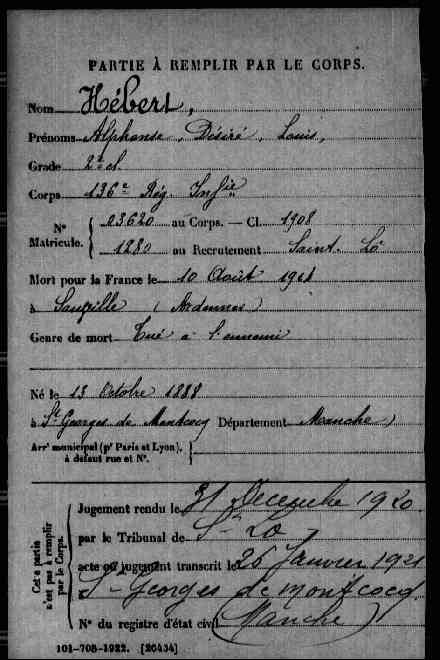 PARTIE À REMPLIR PAR LE CORPS.
Nom Hébert,
Prénoms Alphonse, Désiré, Louis,
Grade 2e cl.
Corps 136e Rég. Infie
N° Matricule. 03620 au Corps. — Cl. 1908
1280 au Recrutement Saint-Lô
Mort pour la France le 10 Août
à (Ardennes)
Genre de mort Tué à l'ennemi
Né le 13 Octobre 1888
à St Georges de Montcocq Département Manche)
Arrt municipal (pr Paris et Lyon), à défaut rue et N°.
Cette partie n'est pas à remplir par le Corps.
Jugement rendu le 31 Décembre 1920.
par le Tribunal de St Lo
acte ou jugement transcrit le 26 Janvier 1921
à St Georges de Montcocq
N° du registre d'état civil (Manche)
101-708-1922. [26434]